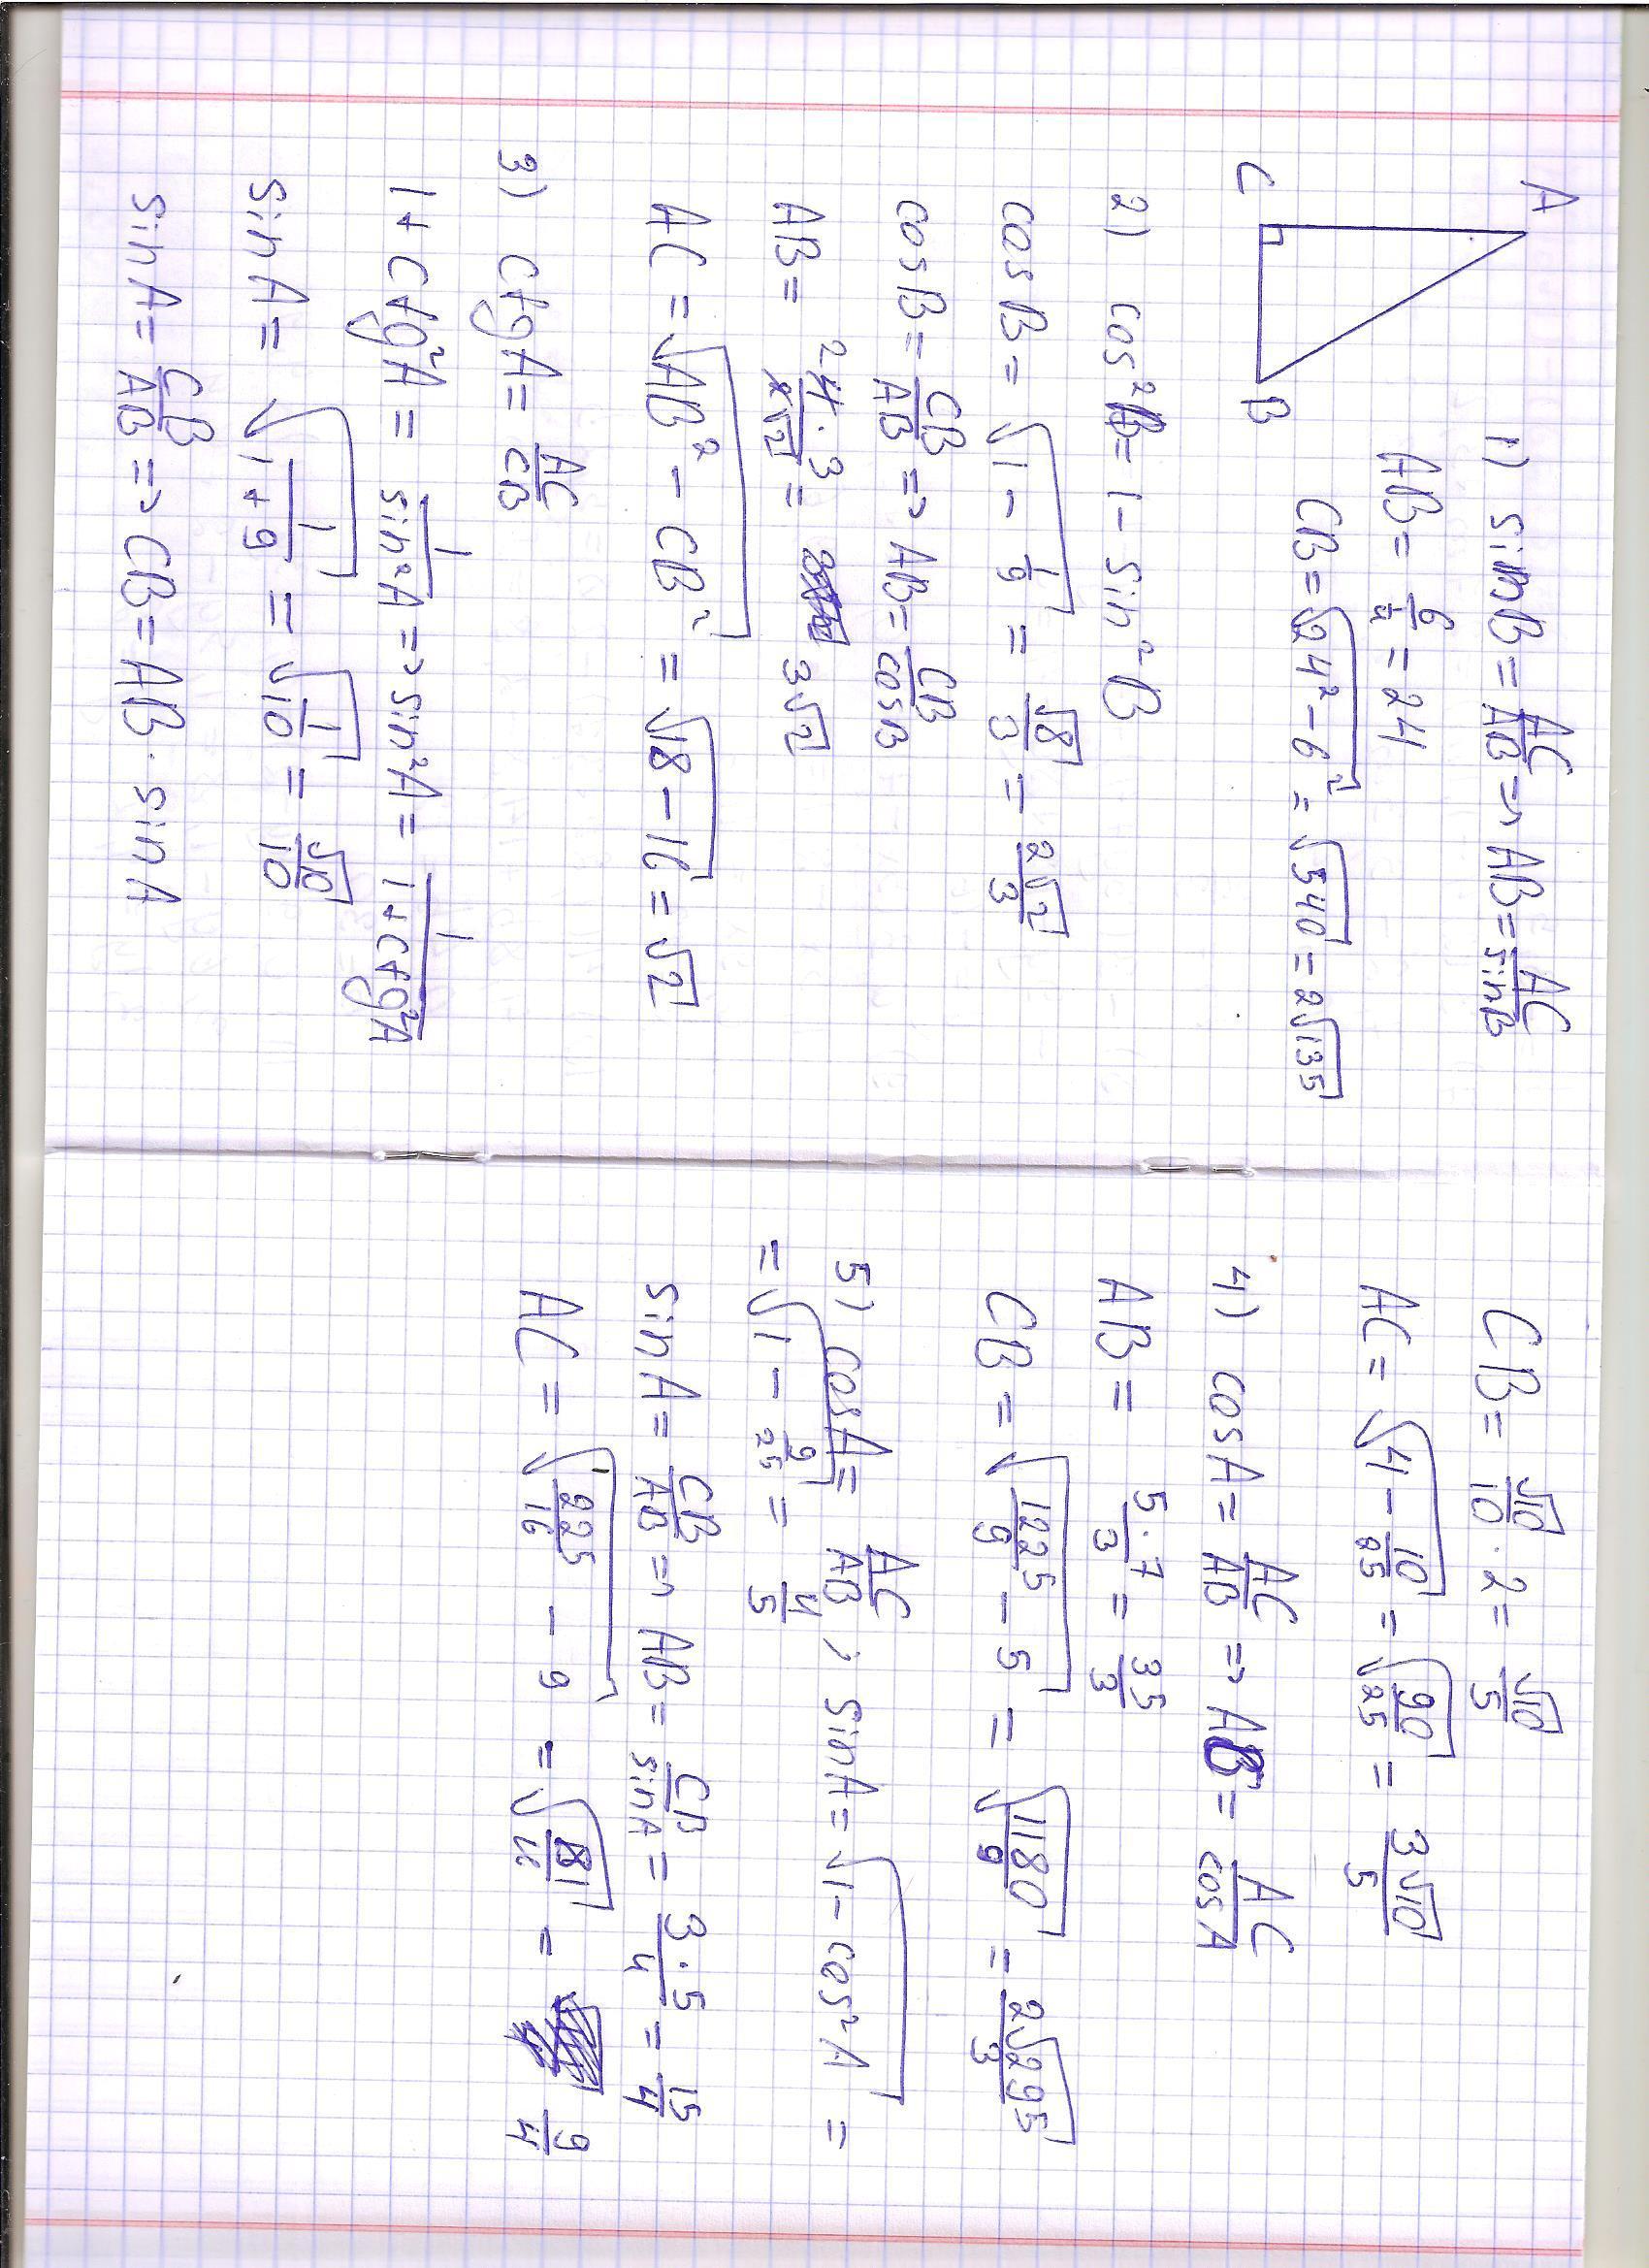 A
C
B
1) sinB = AC/AB => AB = AC/sinB
AB = 6/¼ = 24
CB = √(24² - 6²) = √540 = 2√135
2) cos²B = 1 - sin²B
cosB = √(1 - 1/9) = √8/3 = 2√2/3
cosB = CB/AB => AB = CB/cosB
AB = 3√2
AC = √(AB² - CB²) = √(18 - 16) = √2
3) ctgA = AC/CB
1 + ctg²A = 1/sin²A => sin²A = 1/(1 + ctg²A)
sinA = √(1/(1+9)) = √(1/10) = √10/10
sinA = CB/AB => CB = AB · sinA
CB = √10/10 · 2 = √10/5
AC = √(4 - 10/25) = √(90/25) = 3√10/5
4) cosA = AC/AB => AB = AC/cosA
AB = 5·7/3 = 35/3
CB = √(1225/9 - 5) = √(1180/9) = 2√295/3
5) cosA = AC/AB; sinA = √(1 - cos²A) =
= √(1 - 9/25) = 4/5
sinA = CB/AB => AB = CB/sinA = 3·5/4 = 15/4
AC = √(225/16 - 9) = √(81/16) = 9/4